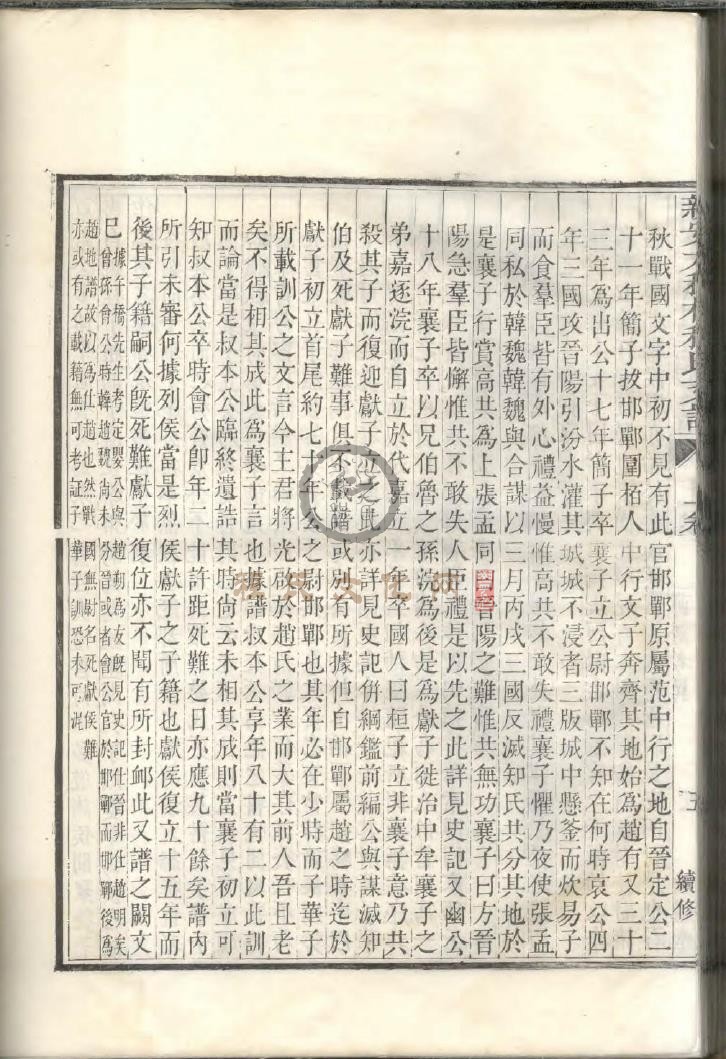 秋戰國文字中初不見有此官邯鄲原屬范中行之地自晉定公二
十一年簡子拔邯鄲圍栢人中行文子奔齊其地始為趙有又三十
三年為出公十七年簡子卒襄子立公尉邯鄲不知在何時哀公四
年三國攻晉陽引汾水灌其城城不浸者三版城中懸釜而炊易子
而食羣臣皆有外心禮益慢惟高共不敢失禮襄子懼乃夜使張孟
同私於韓魏韓魏與合謀以三月丙戌三國反滅知氏共分其地於
是襄子行賞高共為上張孟同曰晉陽之難惟共無功襄子曰方晉
陽急羣臣皆懈惟共不敢失人臣禮是以先之此詳見史記又幽公
十八年襄子卒以兄伯魯之孫浣為後是為獻子徙治中牟襄子之
弟嘉逐浣而自立於代嘉立一年卒國人曰桓子立非襄子意乃共
殺其子而復迎獻子立之此亦詳見史記併綱鑑前編公與謀滅知
伯及死獻子難事俱不載譜或別有所據但自邯鄲屬趙之時迄於
獻子初立首尾約七十年公之尉邯鄲也其年必在少時而子華子
所載訓公之文言今主君將光啟於趙氏之業而大其前人吾且老
矣不得相其成此為襄子言也據譜叔本公享年八十有二以此訓
而論當是叔本公臨終遺誥其時尙云未相其成則當襄子初立可
知叔本公卒時會公卽年二十許距死難之日亦應九十餘矣譜內
所引未審何據列侯當是烈侯獻子之子籍也獻侯復立十五年而
後其子籍嗣公旣死難獻子復位亦不聞有所封邺此又譜之闕文
巳據千橋先生考定嬰公與趙朔為友旣見史記仕晉非仕趙明矣
曾孫會公時韓趙魏尙未分晉或者會公官於邯鄲而邯鄲後為
趙地譜故以為仕趙也然戰國無尉名死獻侯難
亦或有之載籍無可考証子華子訓恐未可泥
五
續修